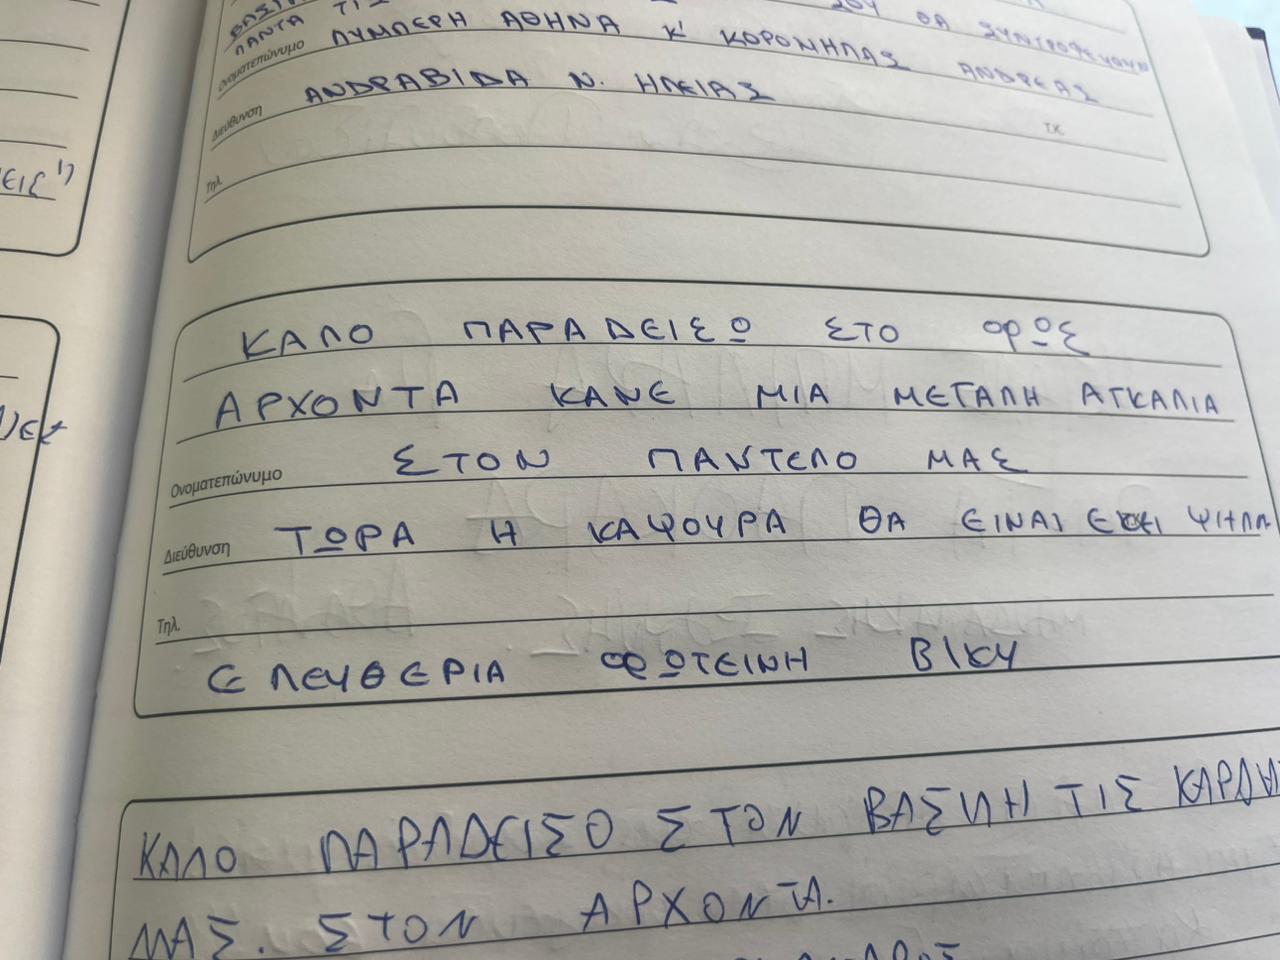 ΠΑΝΤΑ ΤΙΣ
ΣΟΥ ΘΑ ΣΥΝΤΡΟΦΕΥΟΥΝ
Ονοματεπώνυμο ΛΥΜΠΕΡΗ ΑΘΗΝΑ Κ' ΚΟΡΟΜΗΛΑΣ ΑΝΔΡΕΑΣ
Διεύθυνση ΑΝΔΡΑΒΙΔΑ Ν. ΗΛΕΙΑΣ
Τ.Κ.
Τηλ.
ΚΑΛΟ ΠΑΡΑΔΕΙΣΩ ΣΤΟ ΦΩΣ
ΑΡΧΟΝΤΑ ΚΑΝΕ ΜΙΑ ΜΕΓΑΛΗ ΑΓΚΑΛΙΑ
Ονοματεπώνυμο ΣΤΟΝ ΠΑΝΤΕΛΟ ΜΑΣ
Διεύθυνση ΤΩΡΑ Η ΚΑΨΟΥΡΑ ΘΑ ΕΙΝΑΙ ΕΚΕΙ ΨΗΛΑ
Τηλ.
ΕΛΕΥΘΕΡΙΑ ΦΩΤΕΙΝΗ ΒΙΚΥ
ΚΑΛΟ ΠΑΡΑΔΕΙΣΟ ΣΤΟΝ ΒΑΣΙΛΗ ΤΙΣ ΚΑΡΔΙΑ
ΜΑΣ. ΣΤΟΝ ΑΡΧΟΝΤΑ.